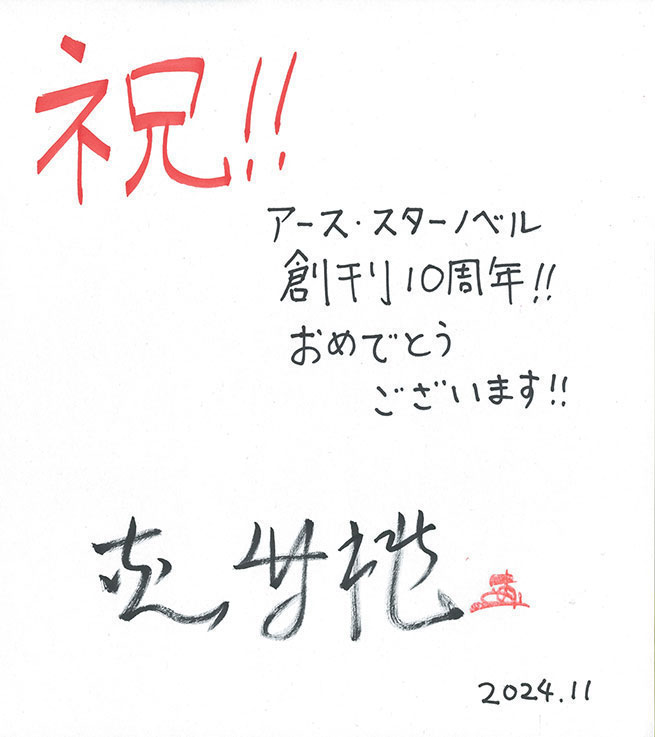 祝!!
アース・スターノベル
創刊10周年!!
おめでとう
ございます!!
2024.11